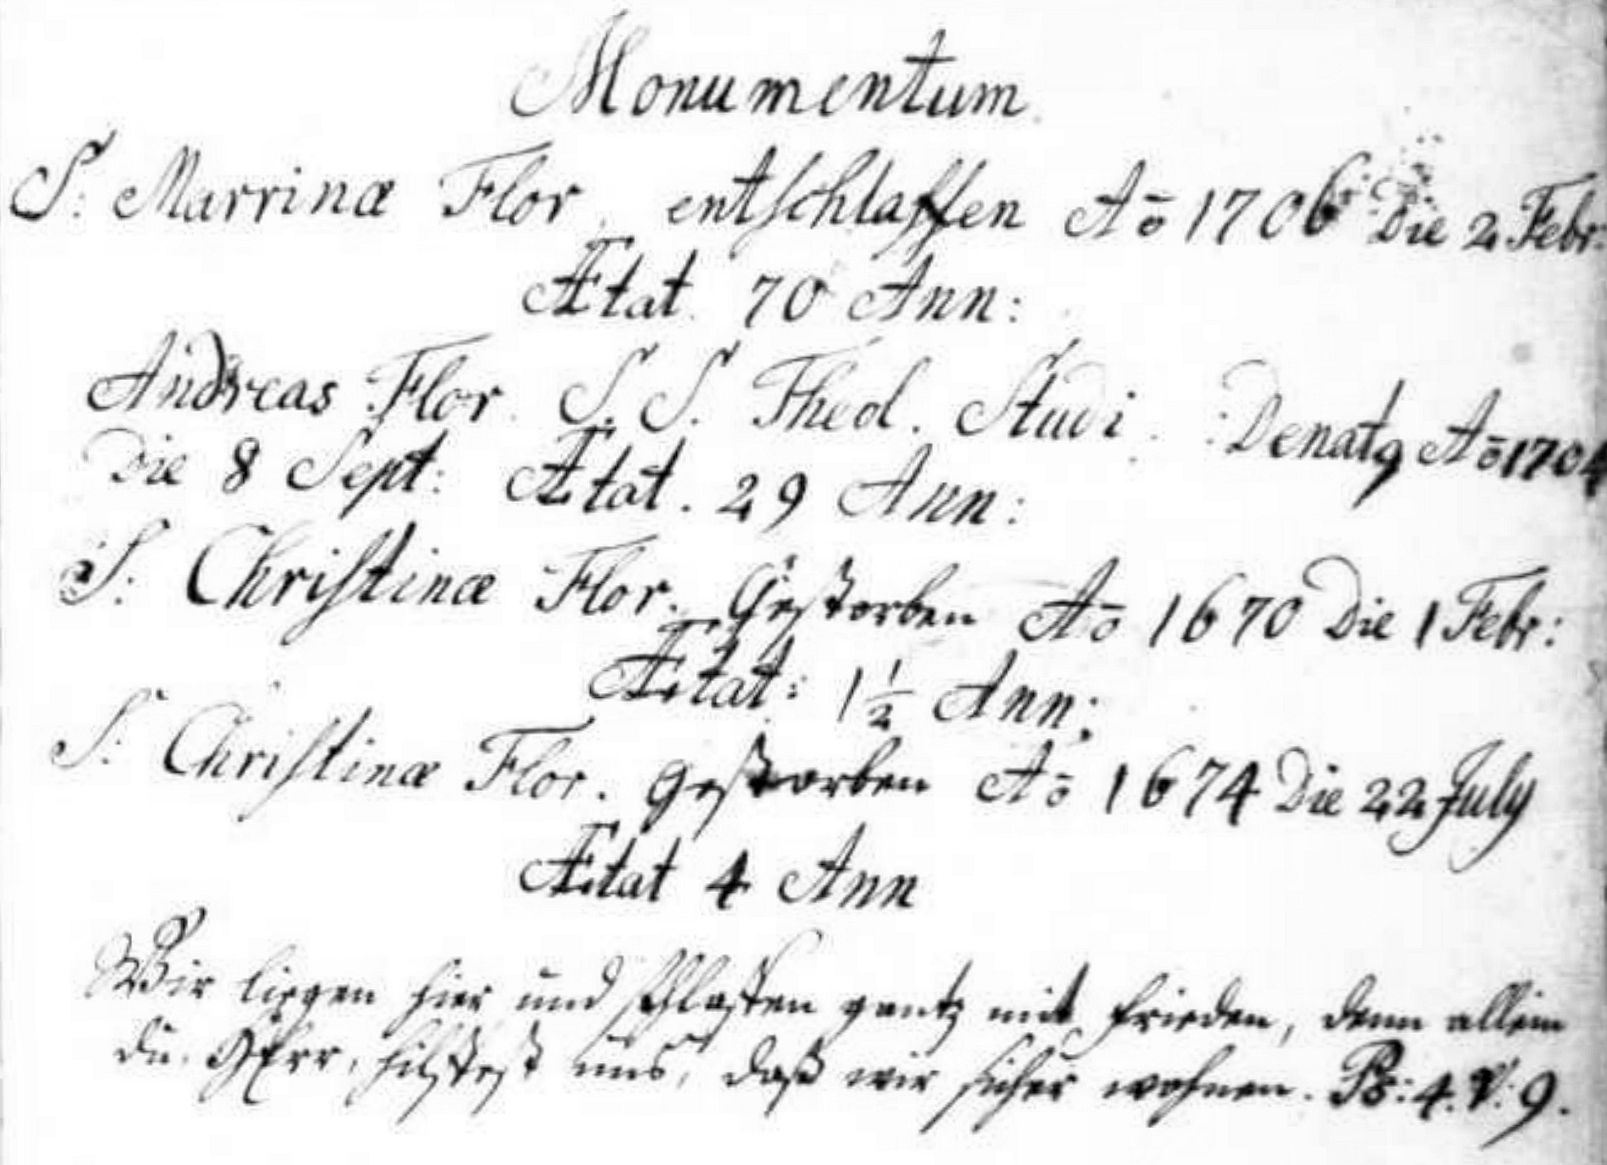 Monumentum.
S: Marrinæ Flor. entschlaffen Aō 1706 Die 2 Febr:
Ætat. 70 Ann:
Andreas Flor. S. S. Theol. Studi. Denatq Aō 1704
Die 8 Sept: Ætat. 29 Ann:
S: Christinæ Flor. Gestorben Aō 1670 Die 1 Febr:
Ætat: 1½ Ann:
S: Christinæ Flor. gestorben Aō 1674 Die 22 July
Ætat 4 Ann
Wir liegen hier und schlaffen gantz mit frieden, denn allein
du. HErr, hilffest uns, daß wir sicher wohnen. Ps: 4. V: 9.